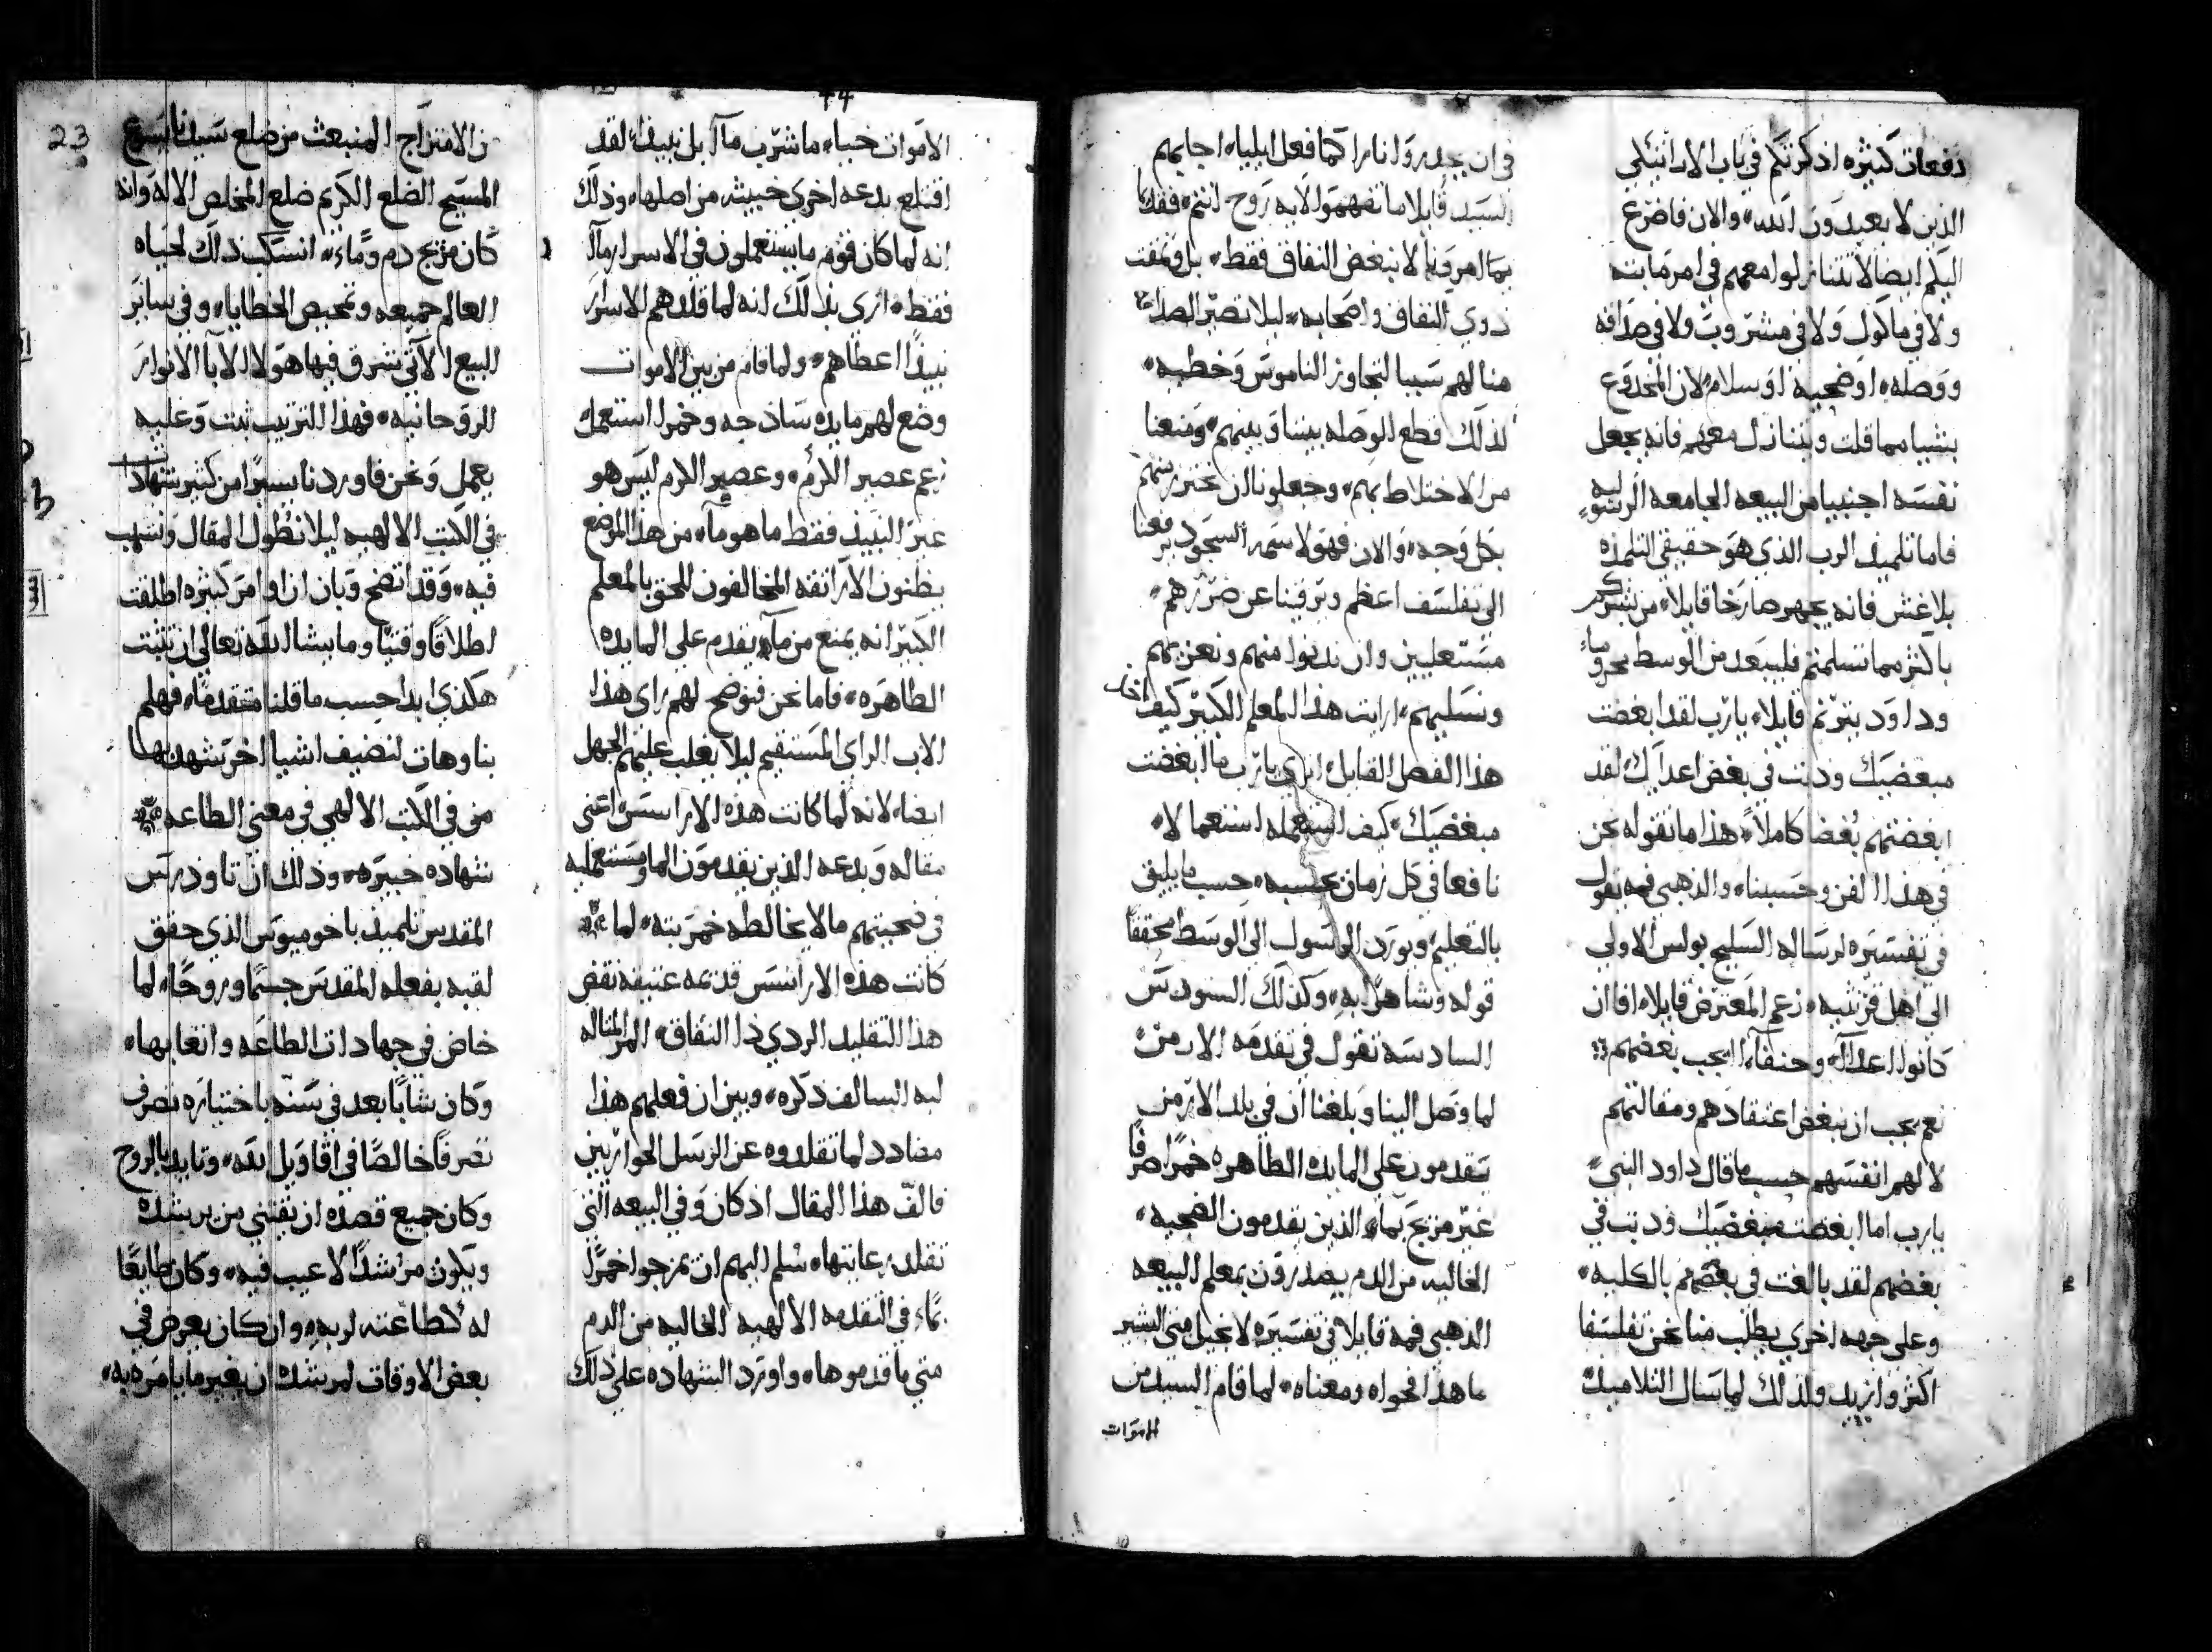 دفعات كثيره اذكرتكم في باب الاراتيكي
الذين لا يعبدون الله والان فاضرع
اليكم ايضا لا تتنازلوا معهم في امر ما بته
ولا في ماكول ولا في مشروب ولا في صداقه
ووصله او ضحيه او سلام لان المخدوع
بشيا مما قلت ويتنازل معهم فانه يجعل
نفسه اجنبيا من البيعه الجامعه الرسوليه
فاما تلميذ الرب الذي هو حقيقي التلمذه
بلا غش فانه يجهر صارخا قايلا من بشركم
باكثر مما تسلمتم فليبعد من الوسط محروما
وداود يترنم قايلا يارب لقد ابغضت
مبغضيك وذبت في بغض اعدايك لقد
ابغضتهم بغضا كاملا هذا ما نقوله نحن
في هذا الفن وحسبنا والذهبي فمه نقول
في تفسيره لرساله السليح بولس الاولى
الى اهل قرنثيه زعم المعترض قايلا افان
كانوا اعدآ وحنفآ ايجب بغضهم
نعم يجب ان نبغض اعتقادهم ومقالتهم
لا لهم انفسهم حسب ما قال داود النبي
يارب اما ابغضت مبغضيك وذبت في
بغضهم لقد بالغت في بغضهم بالكليه
وعلى جهه اخرى يطلب منا نحن تفلسفا
اكثر وازيد ولذلك لما سال التلاميذ
في ان يحدروا نارا كما فعل ايليا اجابهم
السيد قايلا ما تفهموا لايه روح انتم فقد
بما امرونا لا نبغض النفاق فقط بل ونمقت
ذوي النفاق واصحابه ليلا تصير الصداقه
هنا لهم سببا لتجاوز الناموس وخطيه
لذلك قطع الوصله بيننا وبينهم ومنعنا
من الاختلاط بهم وجعلونا ان نحترز منهم
بكل وجه والان فهولا سمه السجود يرفعنا
الى تفلسف اعظم ويرقينا عن ضررهم
مستعليين وان ندنوا منهم ونعزيهم
ونسليهم ارايت هذا المعلم الكبير كيف اخذ
هذا الفصل القايل ابدي يارب ما ابغضت
مبغضيك كيف استعمله استعمالا
نافعا في كل زمان بحسبه حسب ما يليق
بالتعليم ويورد الرسول الى الوسط محققا
قوله وشاهدا به وكذلك السنودس
السادسه تقول في تقدمه الارمن
لما وصل الينا وبلغنا ان في بلد الارمن
يقدمون على المايده الطاهره خمرا صرفا
غير مزيج بما الذين يقدمون الضحيه
الخاليه من الدم يصدرون بمعلم البيعه
الذهبي فمه قايلا في تفسيره لانجيل متى البشير
ما هذا فحواه ومعناه لما قام السيد من
الاموات
44
الاموات خبا ما شرب مآ بل نبيذا لقد
اقتلع بدعه اخرى خبيثه من اصلها وذلك
انه لما كان قوم ما يستعملون في الاسرار مآ
فقط ارى بذلك انه لما قلدهم الاسرار
نبيذا اعطاهم ولما قام من بين الاموات
وضع لهم مايده ساذجه وخمرا استعمل
زعم عصير الكرم وعصير الكرم ليس هو
غير النبيذ فقط ما هو مآ من هذا الموضع
يظنون الاراتقه المخالفون للحق بالمعلم
الكبير انه يمنع من مآ يقدم على المايده
الطاهره فاما نحن فنوضح لهم راي هذا
الاب الراي المستقيم ليلا يغلب عليهم الجهل
ايضا لانه لما كانت هذه الاراسس اعني
مقاله وبدعه الذين يقدمون الما ومستعمليه
في ضحيتهم ما لا يخالطه خمر بته لما
كانت هذه الاراسس قديمه عتيقه نقض
هذا التقليد الردي ذا النفاق
ليه السالف ذكره وبين ان فعلهم هذا
مضادد لما تقلدوه عن الرسل الحواريين
فالف هذا المقال اذ كان وفي البيعه التي
تقلد رعايتها سلم اليهم ان يمزجوا خمرا
بماء في التقدمه الالهيه الخاليه من الدم
متى ما قدموها واورد الشهاده على ذلك
23
من الامتزاج المنبعث من ضلع سيدنا يسوع
المسيح الضلع الكريم ضلع المخلص الاله وانه
كان مزيج دم وماء انسكب ذلك لحياه
العالم جميعه وتمحيص الخطايا وفي ساير
البيع الآتي شرق فيها هولا الابآ الانوار
الروحانيه فهذا الترتيب ثبت وعليه
يعمل ونحن فاوردنا يسيرا من كثير شهادات
في الكتب الالهيه ليلا نطول المقال ونسهب
فيه وقد اتضح وبان ان اوامر كثيره اطلقت
اطلاقا وقتيا وما يشا الله تعالى ان تثبت
هكذي ابدا حسب ما قلنا متقدما فهلم
بنا وهات لنضيف اشيا اخر تشهد بها
من في الكتب الالهي في معنى الطاعه
شهاده خبيره وذلك ان تاودرس
المقدس تلميذ باخوميوس الذي حقق
لقبه بفعله المقدس جسما وروحا لما
خاض في جهادات الطاعه واتعابها
وكان شابا بعد في سنه باختياره تصرف
تصرفا خالصا في اقاويل الله وتايد بالروح
وكان جميع قصده ان يقتني من يرشده
ويكون مرشدا لا عيب فيه وكان طايعا
له كطاعته لربه وان كان يعرض في
بعض الاوقات لمرشده ان يغير ما يامره به